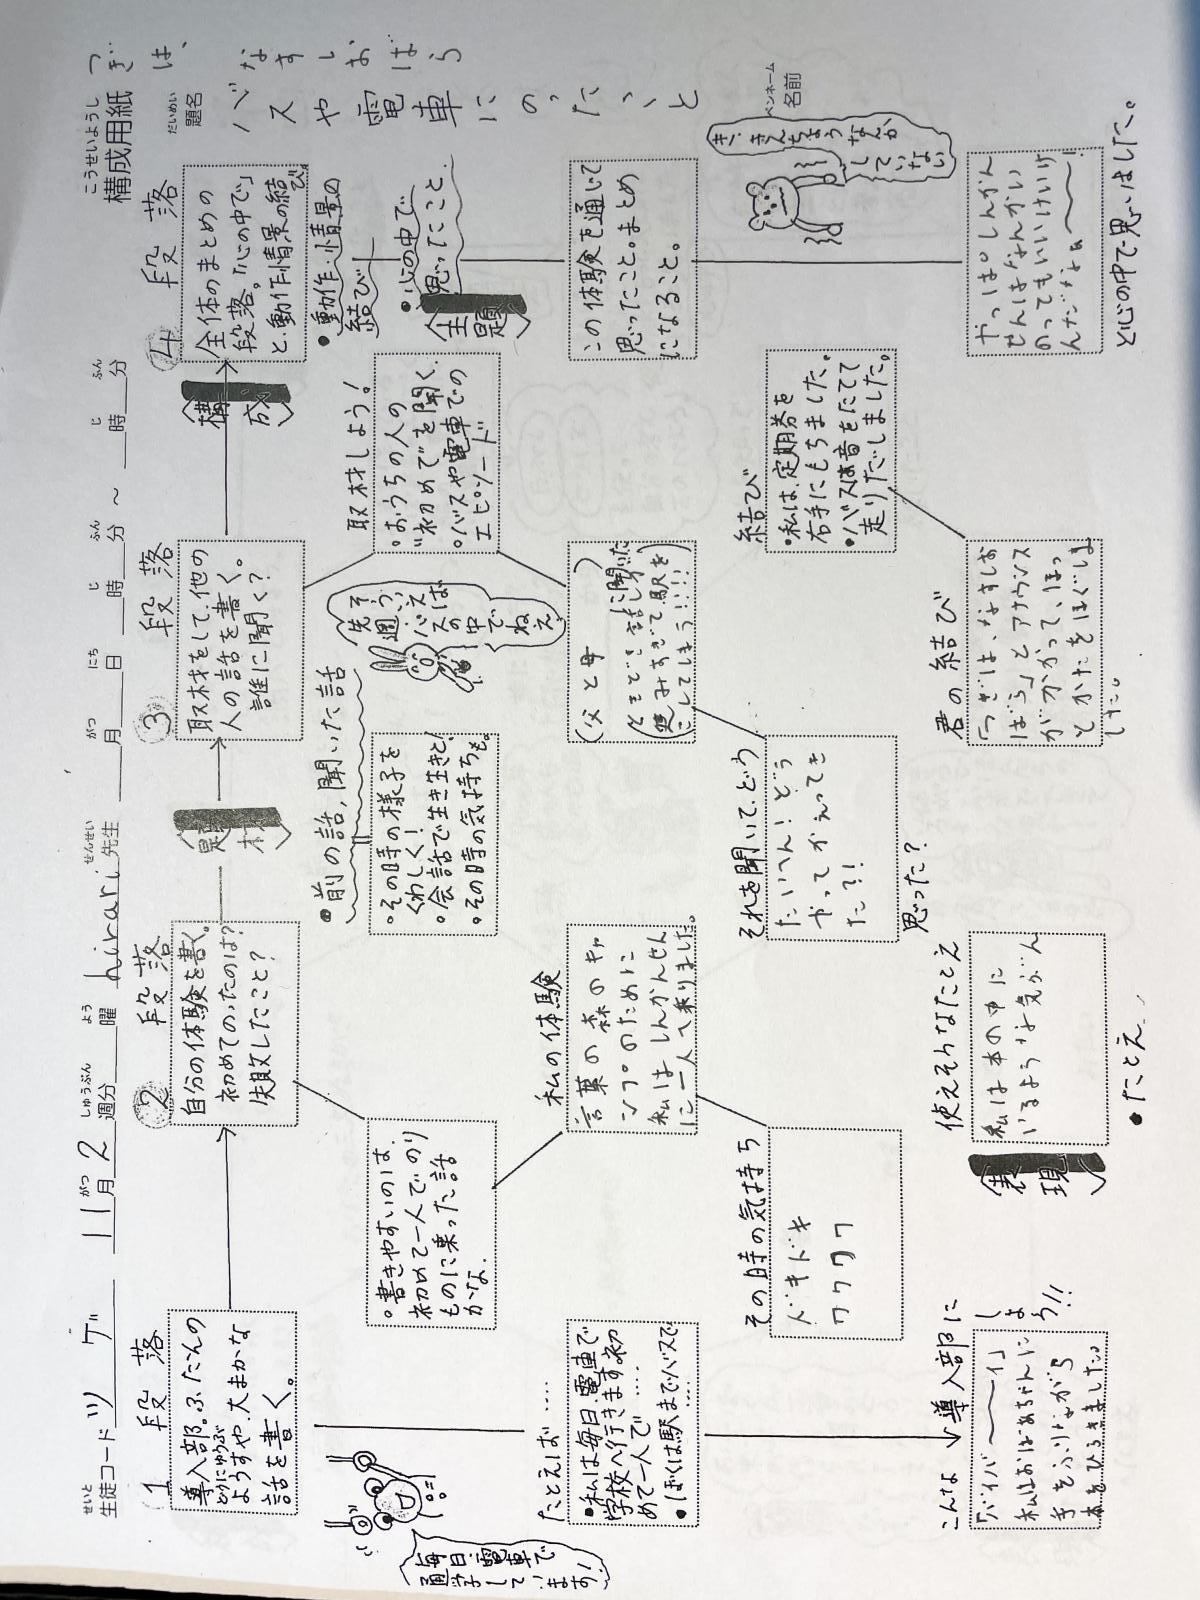 構成用紙
こうせいようし
題名
だいめい
バスや電車にのったこと
つぎは、なすしおばら
ペンネーム
名前
生徒コード ツゲ
せいと
11月2週分
がつ
しゅうぶん
曜
よう
hirari先生
せんせい
月
がつ
日
にち
時
じ
分
ふん
～
時
じ
分
ふん
1段落
導入部。ふだんの
どうにゅうぶ
ようすや、大まかな
話を書く。
毎日、電車で
通学して
います!
たとえば……
・私は毎日、電車で
学校へ行きます。初
めて一人で……
・ぼくは駅までバスで
……
こんな導入部に
しよう!!
「バイバ～～～イ」
私はおばあちゃんに
手をふりながら
本をひろきました。
②段落
自分の体験を書く。
初めてのったのは?
失敗したこと?
・書きやすいのは、
初めて一人でのり
ものに乗った話
かな。
私の体験
言葉の森のキャ
ンプのために
私はしんかんせん
に一人で乗りました。
その時の気持ち
ドキドキ
ワクワク
表現
使えそうなたとえ
私は本の中に
いるような気ぶん
・たとえ
題材
③段落
取材をして、他の
人の話を書く。
誰に聞く?
・前の話、聞いた話
・その時の様子を
くわしく!
・会話で生き生きと!
・その時の気持ちも。
そういえば
先週、バスの中でねえ
取材しよう!
・おうちの人の
"初めて"を聞く。
・バスや電車での
エピソード
(父と母)
それを聞いて、どう
思った?
たいへん!どう
やってかえってき
た?!
構成
④段落
全体のまとめの
段落。「心の中で」
と、動作情景の結び
・動作、情景の
結び
・心の中で
思ったこと。
主題
この体験を通じて
思ったこと。まとめ
になること。
き、きんちょう
なんか
して
いない
やっぱしんかん
せんはなんかい
のってもいいけいけ
んだなぁ～～～!
と心の中で思いました。
結び
・私は、定期券を
右手にもちました。
・バスは音をたてて
走りだしました。
君の結び
「つぎは、なすしお
ばら」とアナウンス
がかかって、ほっ
とかたをほぐしま
した。